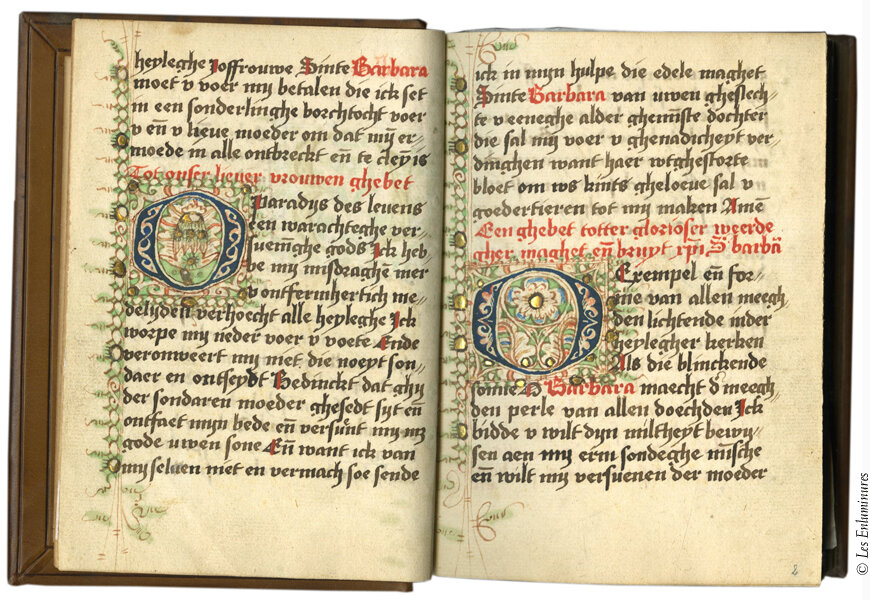 heyleghe joffrouwe Sinte Barbara
moet v voer my betalen die ick set
in een sonderlinghe borchtocht voer
v en̄ v lieue moeder om dat mȳ er-
moede in alle ontbreckt en̄ te cley is
Tot onser lieuer vrouwen ghebet
O Paradys des leuens
een warachteghe ver
gods Ick heb
be my misdraghe mer
v ontfermhertich me-
delijden verhoecht alle heyleghe Ick
worpe my neder voer v voete Ende
veronweert my met die noeyt son-
daer en ontseydt Bedinckt dat ghy
der sondaren moeder ghesedt syt en̄
ontfaet myn bede en̄ versunt my mz
gode uwen sone En̄ want ick van
my seluen niet en vermach soe sende
ick in myn hulpe die edele maghet
Sinte Barbara van uwen gheslech-
te v eeneghe alder dochter
die sal my voer v ghenadicheyt ver-
dinghen want haer wtghestorte
bloet om ws kints gheloeue sal v
goedertieren tot my maken Amē
Een ghebet totter glorioser weerde-
gher maghet en̄ bruyt xp̄i S barbā
O Exempel en̄ for-
me van allen meegh
den lichtende inder
heylegher kerken
Als die blinckende
sonne O Barbara maecht d̄ meegh
den perle van allen doechden Ick
bidde v wilt dyn miltheyt bewy-
sen aen my erm sondeghe mische
en̄ wilt my versuenen der moeder
2
© Les Enluminures